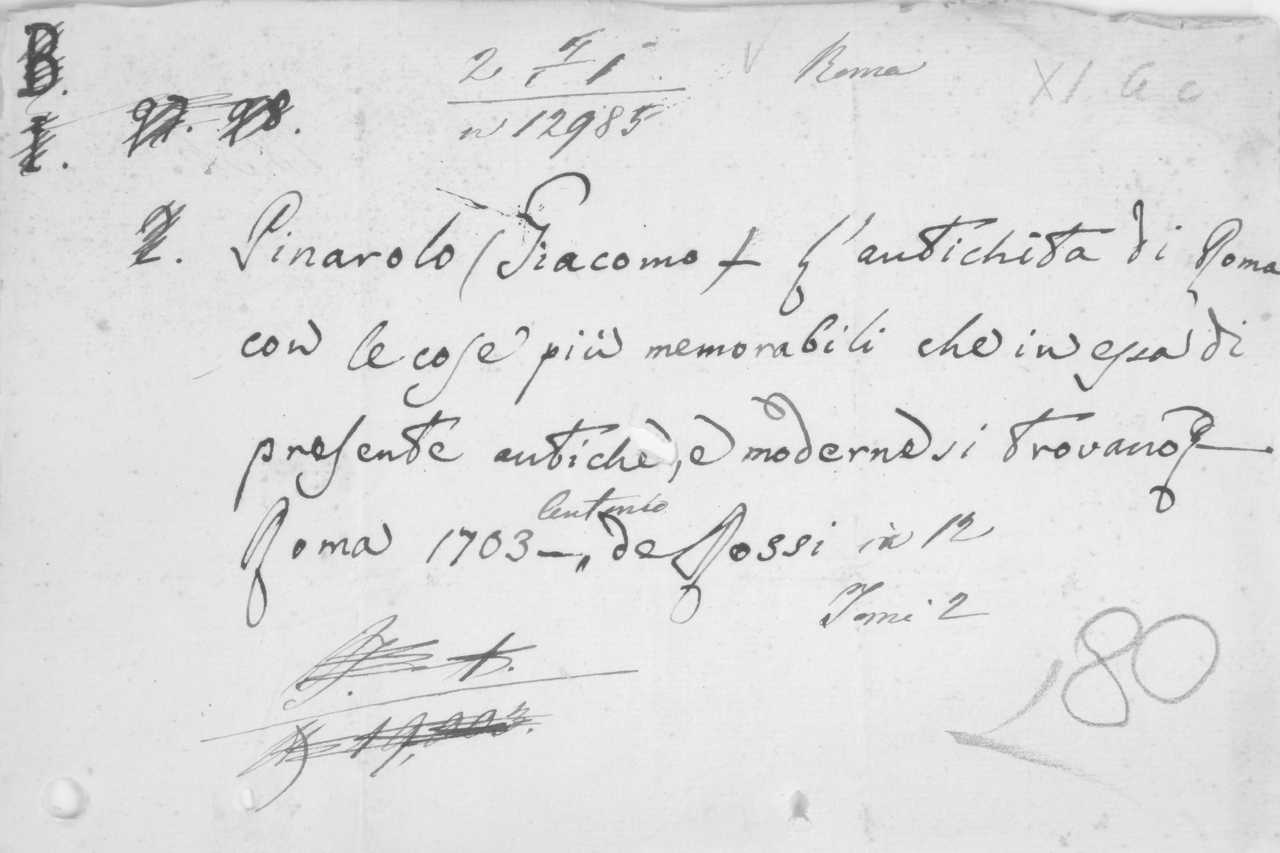 B.
2 I 1 Roma XI G c
n 12985
I. 97. 98.
2. Pinarolo (Giacomo) L'antichita di Roma
con le cose più memorabili che in essa di
presente antiche, e moderne si trovano
Antonio
Roma 1703 — de Rossi in 12
Tomi 2
180